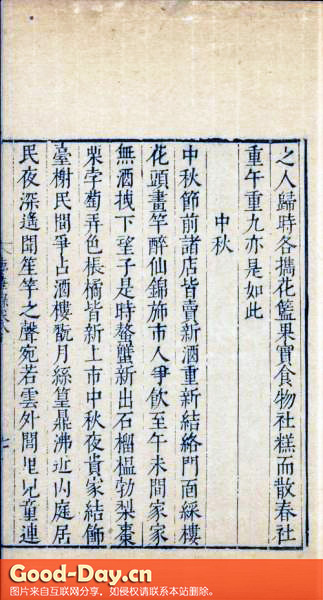 之人歸時各攜花籃果實食物社糕而散春社
重午重九亦是如此
中秋
中秋節前諸店皆賣新酒重新結絡門面綵樓
花頭畫竿醉仙錦斾市人爭飲至午未間家家
無酒拽下望子是時螯蟹新出石榴榲勃梨棗
栗孛萄弄色棖橘皆新上市中秋夜貴家結飾
臺榭民間爭占酒樓翫月絲篁鼎沸近內庭居
民夜深遙聞笙竽之聲宛若雲外閭里兒童連
Good-Day.cn
图片来自互联网分享，如侵权请联系本站删除。